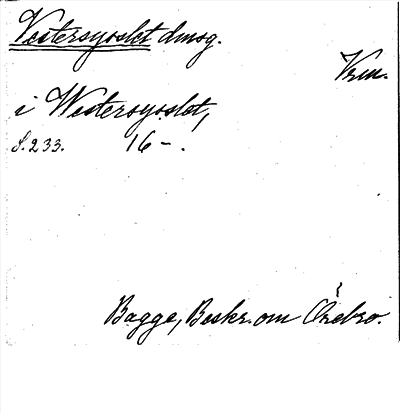 Vestersysslet dmsg.
Vrm.
i Westersysslet,
S. 233. 16-.
Bagge, Beskr. om Örebro.